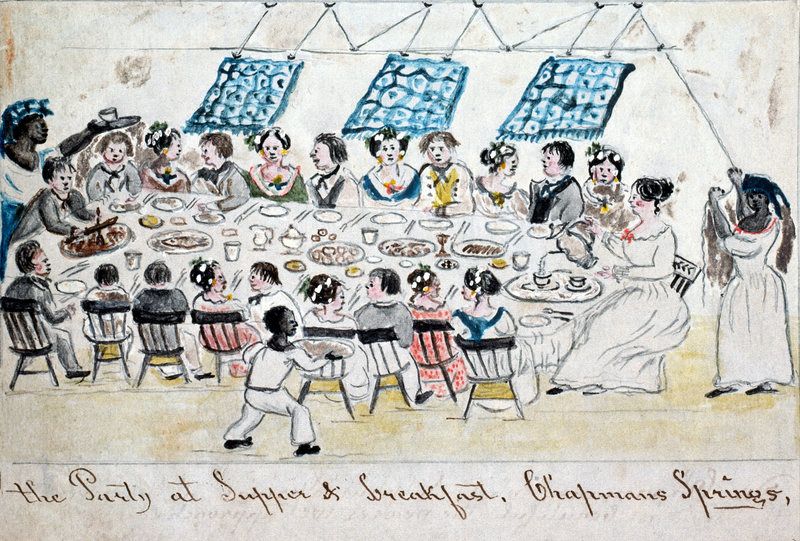 the Party at Supper & breakfast. Chapmans Springs,